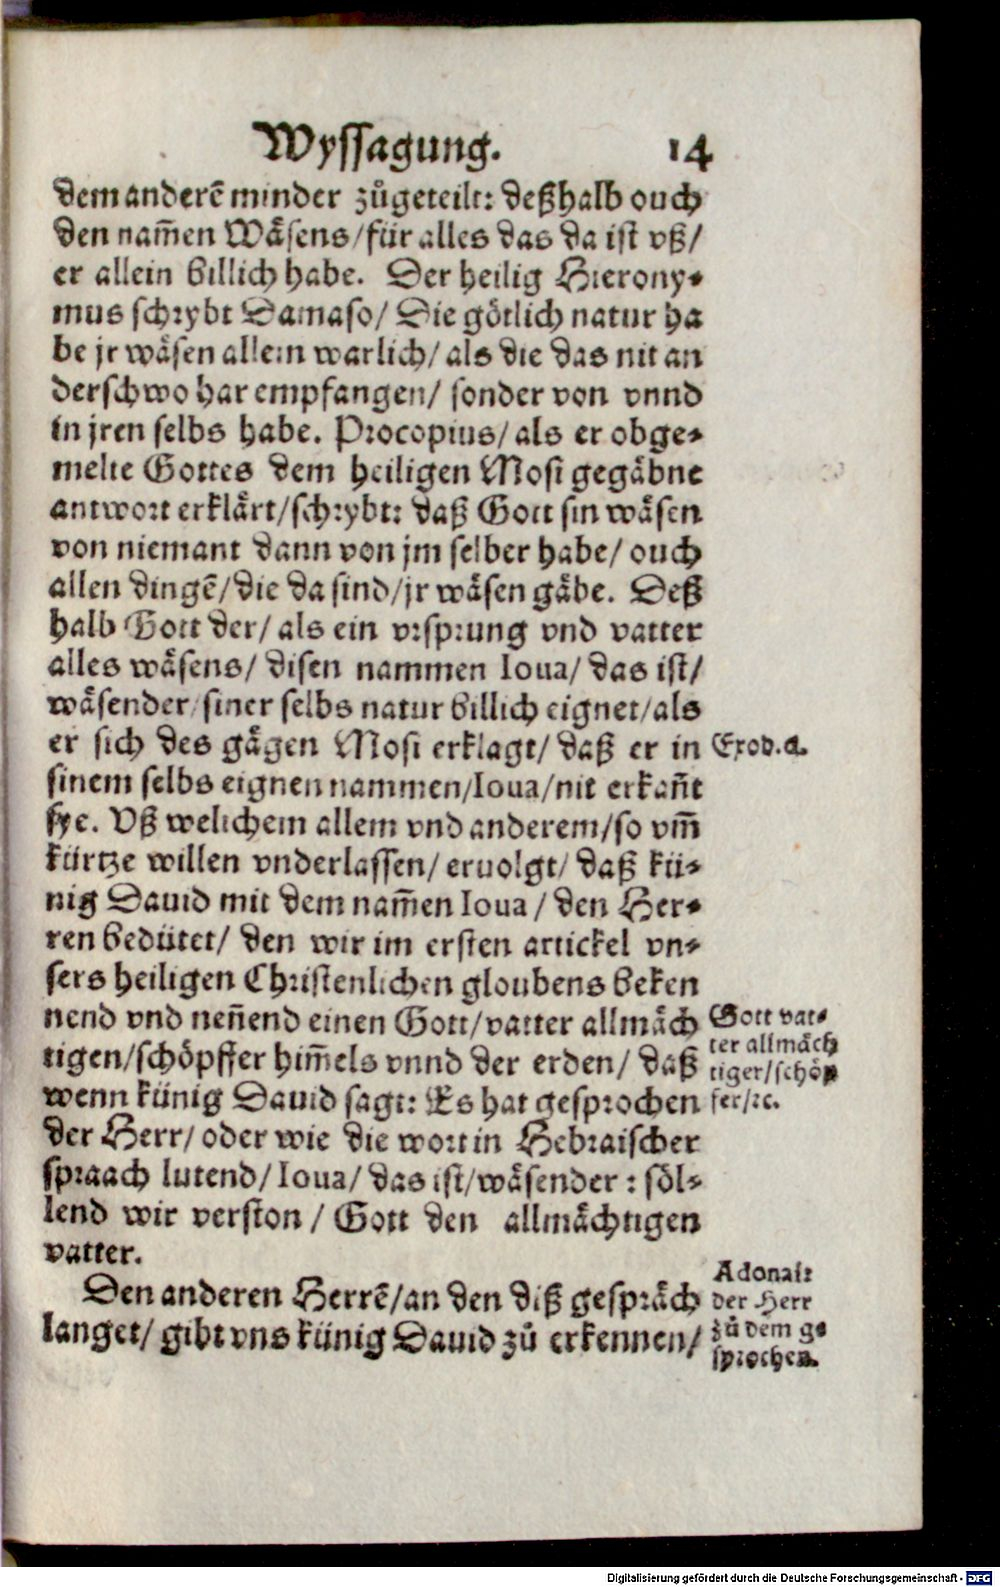 Wyssagung. 14
dem anderē minder zůgeteilt: deßhalb ouch
den nam̄en Wäsens/für alles das da ist vß/
er allein billich habe. Der heilig Hierony-
mus schrybt Damaso/ Die götlich natur ha
be jr wäsen allein warlich/ als die das nit an
derschwo har empfangen/ sonder von vnnd
in jren selbs habe. Procopius/ als er obge-
melte Gottes dem heiligen Mosi gegäbne
antwort erklärt/schrybt: daß Gott sin wäsen
von niemant dann von jm selber habe/ ouch
allen dingē/die da sind/jr wäsen gäbe. Deß
halb Gott der/ als ein vrsprung vnd vatter
alles wäsens/ disen nammen Ioua/ das ist/
wäsender/siner selbs natur billich eignet/als
er sich des gägen Mosi erklagt/ daß er in
Exod.6.
sinem selbs eignen nammen/Ioua/nit erkañt
sye. Vß welichem allem vnd anderem/so vm̄
kürtze willen vnderlassen/ eruolgt/ daß kü-
nig Dauid mit dem nam̄en Ioua / den Her-
ren bedütet/ den wir im ersten artickel vn-
sers heiligen Christenlichen gloubens beken
nend vnd neñend einen Gott/vatter allmäch
tigen/schöpffer him̄els vnnd der erden/ daß
wenn künig Dauid sagt: Es hat gesprochen
der Herr/ oder wie die wort in Hebraischer
spraach lutend/ Ioua/ das ist/wäsender : söl-
lend wir verston / Gott den allmächtigen
vatter.
Gott vat-
ter allmäch
tiger/schöp
fer/ꝛc.
Den anderen Herrē/an den diß gespräch
langet/ gibt vns künig Dauid zů erkennen/
Adonai:
der Herr
zů dem ge
sprochen.
Digitalisierung gefördert durch die Deutsche Forschungsgemeinschaft - DFG